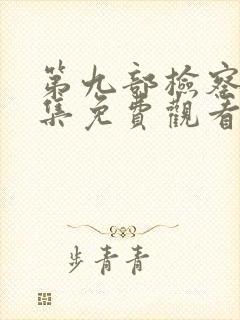 第九部檢察
集免費觀看
步青青